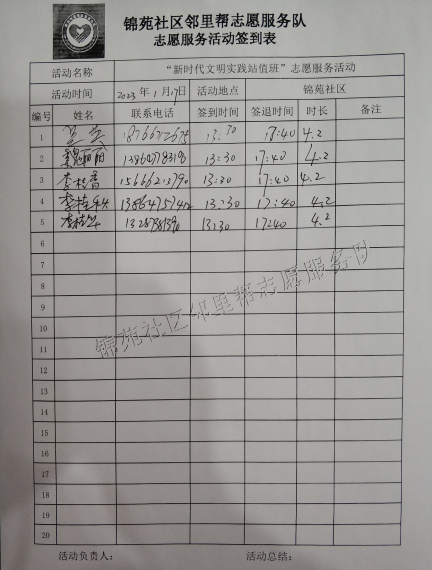 锦苑社区邻里帮志愿服务队
志愿服务活动签到表
活动名称 “新时代文明实践站值班”志愿服务活动
活动时间 2023年1月17日 活动地点 锦苑社区
编号 姓名 联系电话 签到时间 签退时间 时长 备注
1 13:30 17:40 4.2
2 13:30 17:40 4.2
3 李桂香 13:30 17:40 4.2
4 13:30 17:40 4.2
5 13:30 17:40 4.2
6
7
8
9
10
11
12
13
14
15
16
17
18
19
20
锦苑社区邻里帮志愿服务队
活动负责人： 活动总结：